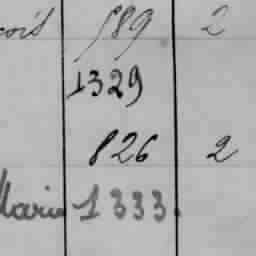 589 2
1329
826 2
Marie 1333.